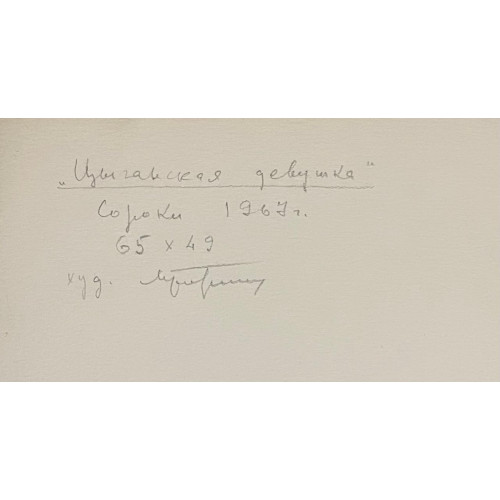 „Цыганская девушка"
Сороки 1967г.
65 x 49
худ.